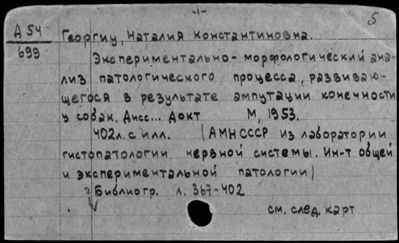 -1-
5
А 54
699
Георгиу, Наталия Константиновна.
Экспериментально-морфологический ана-
лиз патологического процесса, развиваю-
щегося в результате ампутации конечности
у собак. Дисс... Докт М, 1953.
402л. с илл. (АМН СССР из лаборатории
гистопатологии нервной системы. Ин-т общей
и экспериментальной патологии)
Библиогр. л. 367-402
см. след. карт